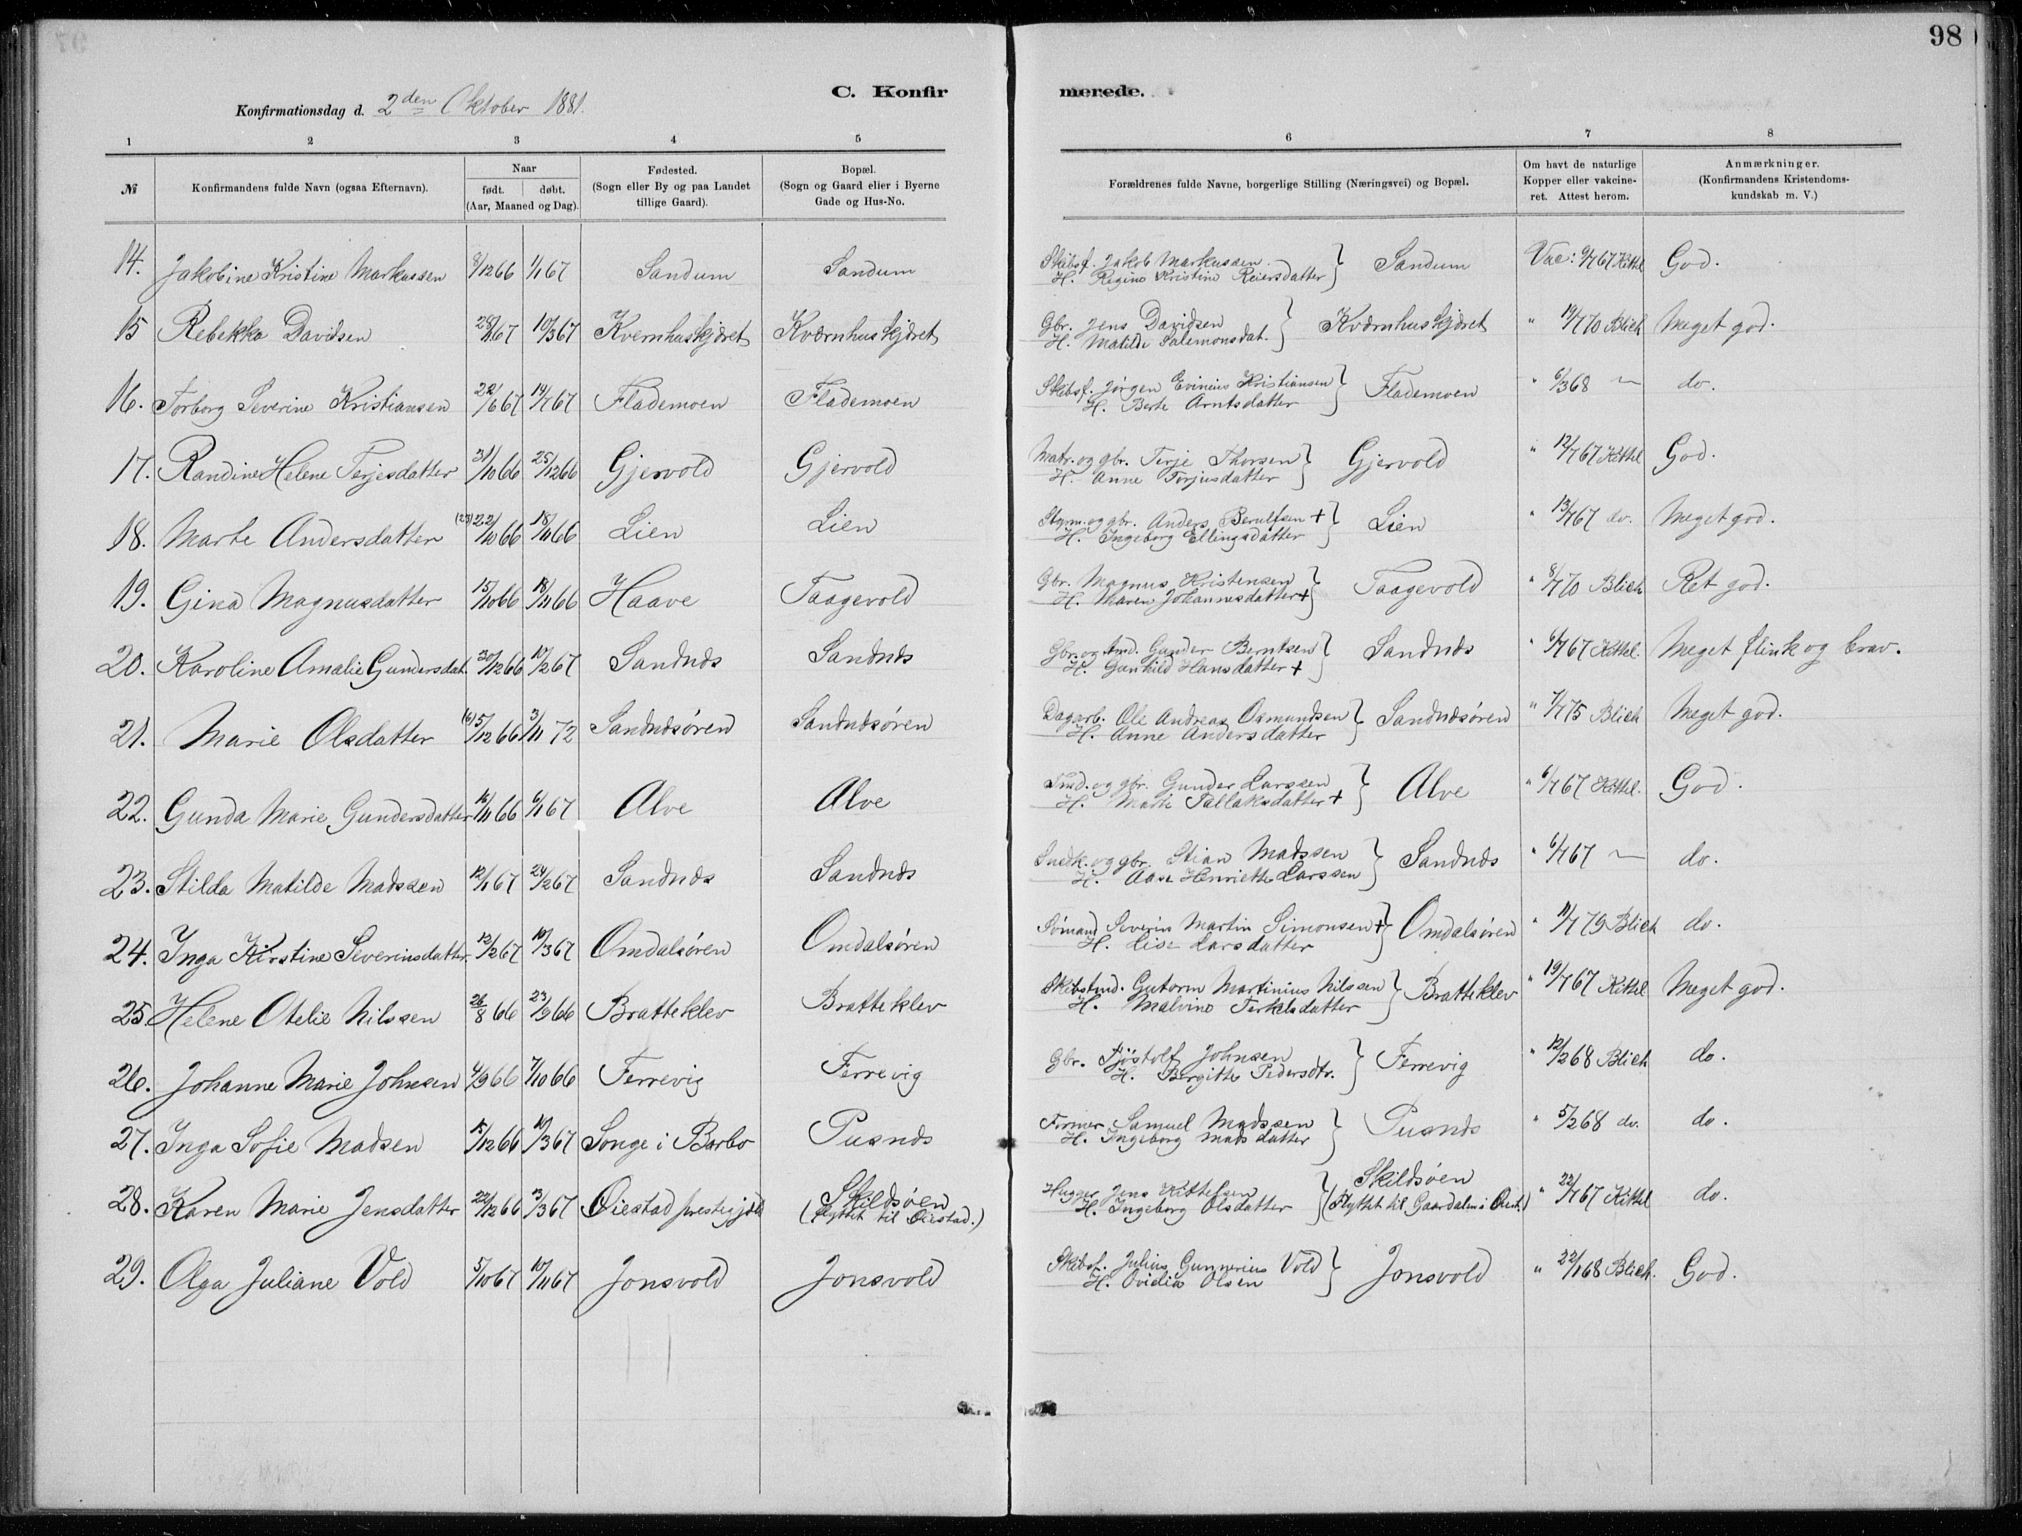 98
Konfirmationsdag d. 2den Oktober 1881.
C. Konfirmerede.
1 2 3 4 5 6 7 8
№ Konfirmandens fulde Navn (ogsaa Efternavn). Naar født. døbt. (Aar, Maaned og Dag). Fødested. (Sogn eller By og paa Landet tillige Gaard). Bopæl. (Sogn og Gaard eller i Byerne Gade og Hus-No. Forældrenes fulde Navne, borgerlige Stilling (Næringsvei) og Bopæl. Om havt de naturlige Kopper eller vakcineret. Attest herom. Anmærkninger. (Konfirmandens Kristendomskundskab m. V.)
14. Jakobine Kristine Markussen 8/12 66 1/1 67 Sandum Sandum Skibsf. Jakob Markussen. H. Regine Kristine Reiersdatter } Sandum Vac: 6/7 67 Kittel God.
15 Rebekka Davidsen 28/1 67 10/3 67 Kvernhuskjæret Kværnhuskjæret Gbr. Jens Davidsen H. Matilde Salemonsdat. } Kværnhuskjæret " 19/7 70 Blich Meget god.
16. Torborg Severine Kristiansen 22/6 67 14/7 67 Flademoen Flademoen Skibsf. Jørgen Evineus Kristiansen H. Berte Arntsdatter } Flademoen " 6/3 68 — do.
17. Randine Helene Terjesdatter 31/10 66 25/12 66 Gjervold Gjervold Matr. og gbr. Terje Thorsen H. Anne Torjusdatter } Gjervold " 12/7 67 Kittel God.
18. Marte Andersdatter (23) 22/10 66 18/11 66 Lien Lien Styrm. og gbr. Anders Berulfsen + H. Ingeborg Ellingsdatter } Lien " 13/7 67 do. Meget god.
19. Gina Magnusdatter 15/10 66 18/11 66 Haave Taagevold Gbr. Magnus Kristensen H. Maren Johannesdatter + } Taagevold " 8/7 70 Blich Ret god.
20. Karoline Amalie Gundersdat. 30/12 66 17/2 67 Sandnæs Sandnæs Gbr. og tmd. Gunder Berntsen H. Gunhild Hansdatter + } Sandnæs " 6/7 67 Kittel. Meget flink og brav.
21. Marie Olsdatter (6) 5/12 66 3/11 72 Sandnæsøren Sandnæsøren Dagarb. Ole Andreas Osmundsen H. Anne Andersdatter } Sandnæsøren " 7/7 75 Blich Meget god.
22. Gunda Marie Gundersdatter 16/11 66 6/1 67 Alve Alve Tmd. og gbr. Gunder Larssen H. Marte Tallaksdatter + } Alve " 6/7 67 Kittel. God.
23. Stilda Matilde Madssen 12/1 67 24/2 67 Sandnæs Sandnæs og gbr. Stian Madssen H. Aase Henriette Larssen } Sandnæs " 6/7 67 — do.
24. Inga Kirstine Severinsdatter. 12/2 67 10/3 67 Omdalsøren Omdalsøren Sømand Severin Martin Simonsen + H. Lise Larsdatter } Omdalsøren " 11/7 79 Blich do.
25. Helene Otelie Nilssen 26/8 66 23/9 66 Bratteklev Bratteklev Skibstmd. Gutorm Martinius Nilssen H. Malvine Terkelsdatter } Bratteklev " 19/7 67 Kittel Meget god.
26. Johanne Marie Johnsen 4/9 66 7/10 66 Ferrevig Ferrevig Gbr. Tjøstolf Johnsen H. Bergitte Pedersdtr. } Ferrevig " 12/2 68 Blich do.
27. Inga Sofie Madsen 15/12 66 10/3 67 Songe i Barbo Pusnæs Former Samuel Madssen H. Ingeborg Madsdatter } Pusnæs " 5/2 68 do. do.
28. Karen Marie Jensdatter 22/12 66 3/3 67 Øiestad prestegjæld Skildsøen (flyttet til Øiestad.) Hugger Jens Kittelsen H. Ingeborg Olsdatter } Skildsøen (Flyttet til Gaardalen i Øiest.) " 22/7 67 Kittel do.
29. Olga Juliane Vold 5/10 67 10/11 67 Jonsvold Jonsvold Skibsf. Julius Gunnerius Vold H. Ovidia Olsen } Jonsvold " 22/1 68 Blich. God.